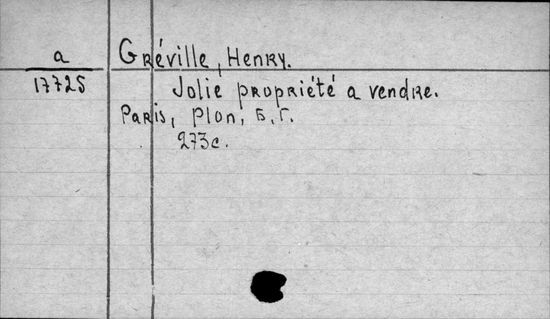 a
17725
Gréville, Henry.
Jolie propriété a vendre.
Paris, Plon, Б.Г.
273c.